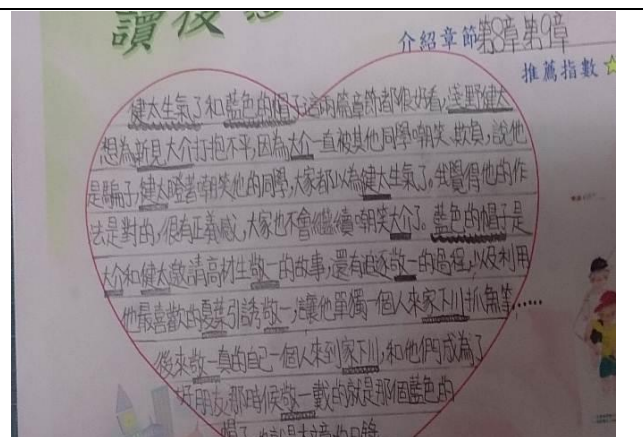 讀後
介紹章節第8章第9章
推薦指數
健太生氣了和藍色的帽子這兩篇章節都很好看,淺野健太
想為新見大介打抱不平,因為大介一直被其他同學嘲笑、欺負,說他
是騙子,健太瞪著嘲笑他的同學,大家都以為健太生氣了。我覺得他的作
法是對的,很有正義感,大家也不會繼續嘲笑大介了。藍色的帽子是
大介和健太邀請高材生敬一的故事,還有追逐敬一的過程,以及利用
他最喜歡的獨角仙引誘敬一,讓他單獨一個人來家下川抓魚等,……
後來敬一真的自己一個人來到家下川,和他們成為了
好朋友,那時候敬一戴的就是那個藍色的